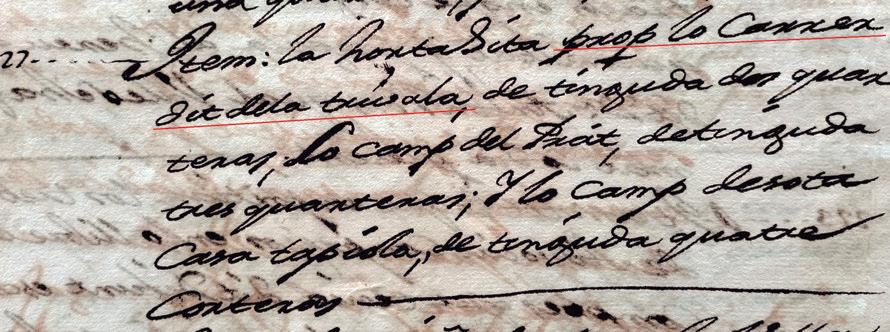 una
27 Item: la horta Sita prop lo Carrer
dit dela trivala, de tinguda dos quar
teras, Lo camp del Prat, detinguda
tres quarteras; Y lo Camp desota
Casa tapiola, de tinguda quatre
Corteras